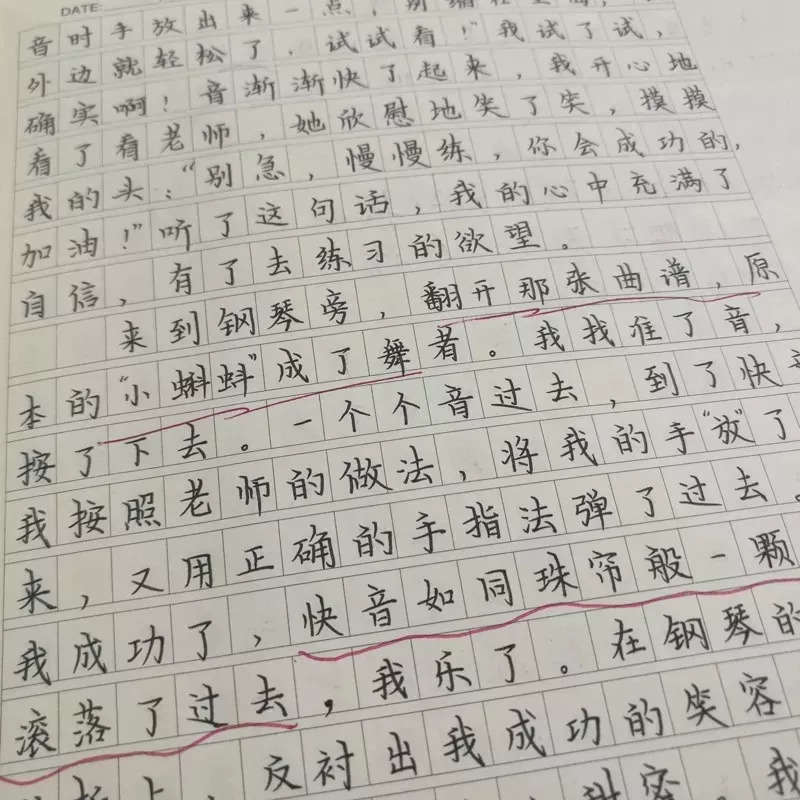 DATE:
音时手放出来一点，别缩在里面，
外边就轻松了，试试看！”我试了试，
确实啊！音渐渐快了起来，我开心地
看了看老师，她欣慰地笑了笑，摸摸
我的头：“别急，慢慢练，你会成功的，
加油！”听了这句话，我的心中充满了
自信，有了去练习的欲望。
来到钢琴旁，翻开那张曲谱，原
本的“小蝌蚪”成了舞者。我找准了音，
按了下去。一个个音过去，到了快音
我按照老师的做法，将我的手“放”了
来，又用正确的手指法弹了过去。
我成功了，快音如同珠帘般一颗
滚落了过去，我乐了。在钢琴的
板上，反衬出我成功的笑容
甜蜜。我